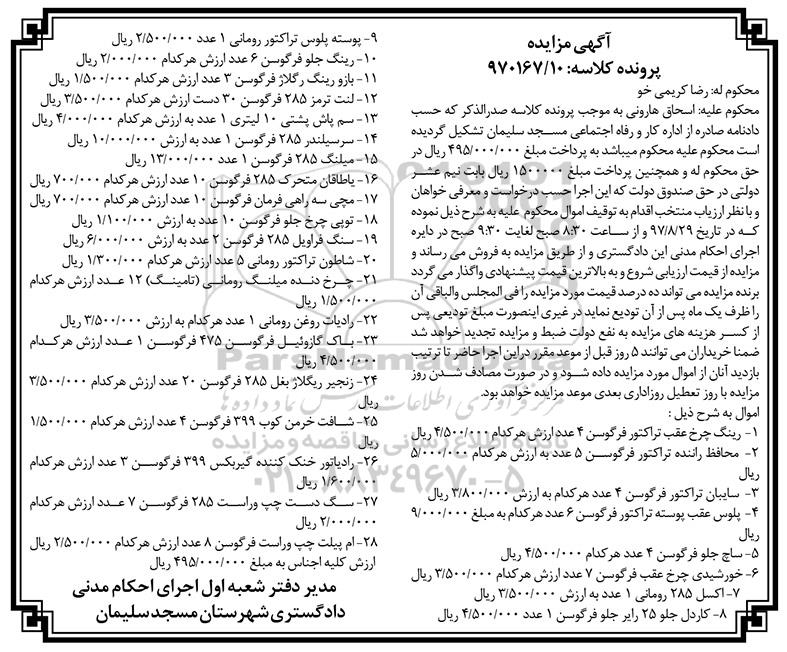 آگهی مزایده
پرونده کلاسه: ۹۷۰۱۶۷/۱۰
محکوم له: رضا کریمی خو
محکوم علیه: اسحاق هارونی به موجب پرونده کلاسه صدرالذکر که حسب
دادنامه صادره از اداره کار و رفاه اجتماعی مسجد سلیمان تشکیل گردیده
است محکوم علیه محکوم میباشد به پرداخت مبلغ ۴۹۵/۰۰۰/۰۰۰ ریال در
حق محکوم له و همچنین پرداخت مبلغ ۱۵۰۰۰۰۰ ریال بابت نیم عشر
دولتی در حق صندوق دولت که این اجرا حسب درخواست و معرفی خواهان
و با نظر ارزیاب منتخب اقدام به توقیف اموال محکوم علیه به شرح ذیل نموده
که در تاریخ ۹۷/۸/۲۹ و از ساعت ۸:۳۰ صبح لغایت ۹:۳۰ صبح در دایره
اجرای احکام مدنی این دادگستری و از طریق مزایده به فروش می رساند و
مزایده از قیمت ارزیابی شروع و به بالاترین قیمت پیشنهادی واگذار می گردد
برنده مزایده می تواند ده درصد قیمت مورد مزایده را فی المجلس والباقی آن
را ظرف یک ماه پس از آن تودیع نماید در غیری اینصورت مبلغ تودیعی پس
از کسر هزینه های مزایده به نفع دولت ضبط و مزایده تجدید خواهد شد
ضمنا خریداران می توانند ۵ روز قبل از موعد مقرر دراین اجرا حاضر تا ترتیب
بازدید آنان از اموال مورد مزایده داده شود و در صورت مصادف شدن روز
مزایده با روز تعطیل روزاداری بعدی موعد مزایده خواهد بود.
اموال به شرح ذیل :
۱- رینگ چرخ عقب تراکتور فرگوسن ۴ عدد ارزش هرکدام ۴/۵۰۰/۰۰۰ ریال
۲- محافظ راننده تراکتور فرگوسن ۵ عدد به ارزش هرکدام ۵/۰۰۰/۰۰۰
ریال
۳- سایبان تراکتور فرگوسن ۴ عدد هرکدام به ارزش ۳/۸۰۰/۰۰۰ ریال
۴- پلوس عقب پوسته تراکتور فرگوسن ۶ عدد هرکدام به مبلغ ۹/۰۰۰/۰۰۰
ریال
۵- ساچ جلو فرگوسن ۴ عدد هرکدام ۴/۵۰۰/۰۰۰ ریال
۶- خورشیدی چرخ عقب فرگوسن ۷ عدد ارزش هرکدام ۳/۵۰۰/۰۰۰ ریال
۷- اکسل ۲۸۵ رومانی ۱ عدد به ارزش ۳/۵۰۰/۰۰۰ ریال
۸- کاردل جلو ۲۵ رایر جلو فرگوسن ۱ عدد ۴/۵۰۰/۰۰۰ ریال
۹- پوسته پلوس تراکتور رومانی ۱ عدد ۲/۵۰۰/۰۰۰ ریال
۱۰- رینگ جلو فرگوسن ۶ عدد ارزش هرکدام ۲/۰۰۰/۰۰۰ ریال
۱۱- بازو رینگ رگلاژ فرگوسن ۳ عدد ارزش هرکدام ۱/۵۰۰/۰۰۰ ریال
۱۲- لنت ترمز ۲۸۵ فرگوسن ۳۰ دست ارزش هرکدام ۳/۵۰۰/۰۰۰ ریال
۱۳- سم پاش پشتی ۱۰ لیتری ۱ عدد به ارزش هرکدام ۴/۰۰۰/۰۰۰ ریال
۱۴- سرسیلندر ۲۸۵ فرگوسن ۱ عدد به ارزش ۱۰/۰۰۰/۰۰۰ ریال
۱۵- میلنگ ۲۸۵ فرگوسن ۱ عدد ۱۳/۰۰۰/۰۰۰ ریال
۱۶- یاطاقان متحرک ۲۸۵ فرگوسن ۱۰ عدد ارزش هرکدام ۷۰۰/۰۰۰ ریال
۱۷- مچی سه راهی فرمان فرگوسن ۱۰ عدد ارزش هرکدام ۷۰۰/۰۰۰ ریال
۱۸- توپی چرخ جلو فرگوسن ۱۰ عدد به ارزش ۱/۱۰۰/۰۰۰ ریال
۱۹- سنگ فراویل ۲۸۵ فرگوسن ۲ عدد به ارزش ۶/۰۰۰/۰۰۰ ریال
۲۰- شاطون تراکتور رومانی ۵ عدد ارزش هرکدام ۱/۳۰۰/۰۰۰ ریال
۲۱- چرخ دنده میلنگ رومانی (تامینگ) ۱۲ عدد ارزش هرکدام
۱/۵۰۰/۰۰۰ ریال
۲۲- رادیات روغن رومانی ۱ عدد هرکدام به ارزش ۳/۵۰۰/۰۰۰ ریال
۲۳- باک گازوئیل فرگوسن ۴۷۵ فرگوسن ۱ عدد ارزش هرکدام
۴/۵۰۰/۰۰۰ ریال
۲۴- زنجیر ریگلاژ بغل ۲۸۵ فرگوسن ۲۰ عدد ارزش هرکدام ۳/۵۰۰/۰۰۰
ریال
۲۵- شافت خرمن کوب ۳۹۹ فرگوسن ۴ عدد ارزش هرکدام ۱/۵۰۰/۰۰۰
ریال
۲۶- رادیاتور خنک کننده گیربکس ۳۹۹ فرگوسن ۳ عدد ارزش هرکدام
۱/۶۰۰/۰۰۰ ریال
۲۷- سگ دست چپ وراست ۲۸۵ فرگوسن ۷ عدد ارزش هرکدام
۲/۰۰۰/۰۰۰ ریال
۲۸- ام پیلت چپ وراست فرگوسن ۸ عدد ارزش هرکدام ۲/۵۰۰/۰۰۰ ریال
ارزش کلیه اجناس به مبلغ ۴۹۵/۰۰۰/۰۰۰ ریال
مدیر دفتر شعبه اول اجرای احکام مدنی
دادگستری شهرستان مسجدسلیمان
ParsNamadData
مرکز فرآوری اطلاعات پارس نماد داده ها
پایگاه اطلاع رسانی مناقصه و مزایده
۰۲۱-۸۸۳۴۹۶۷۰-۵